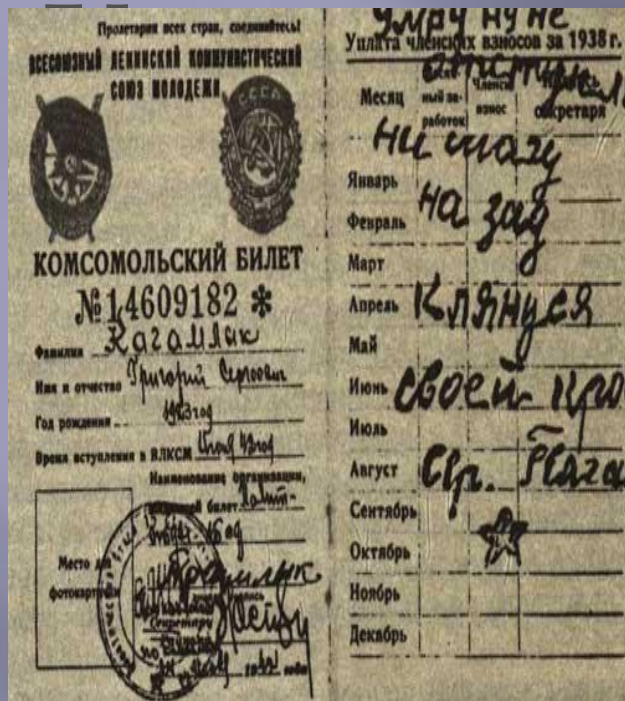 Пролетарии всех стран, соединяйтесь!
ВСЕСОЮЗНЫЙ ЛЕНИНСКИЙ КОММУНИСТИЧЕСКИЙ
СОЮЗ МОЛОДЕЖИ
СССР
КОМСОМОЛЬСКИЙ БИЛЕТ
№14609182 *
Фамилия Кагамлык
Имя и отчество Григорий Сергеевич
Год рождения 1923 год
Время вступления в ВЛКСМ
Наименование организации,
билет
Место для
фотокарточки
Кагамлык
подпись
19 года
Умру ну не
Уплата членских взносов за 1938 г.
Месяц
ный за-
работок
Членск
взнос
секретаря
ни шагу
Январь
на зад
Февраль
Март
Апрель Клянуся
Май
Июнь своей кро
Июль
Август
Сентябрь
Октябрь
Ноябрь
Декабрь